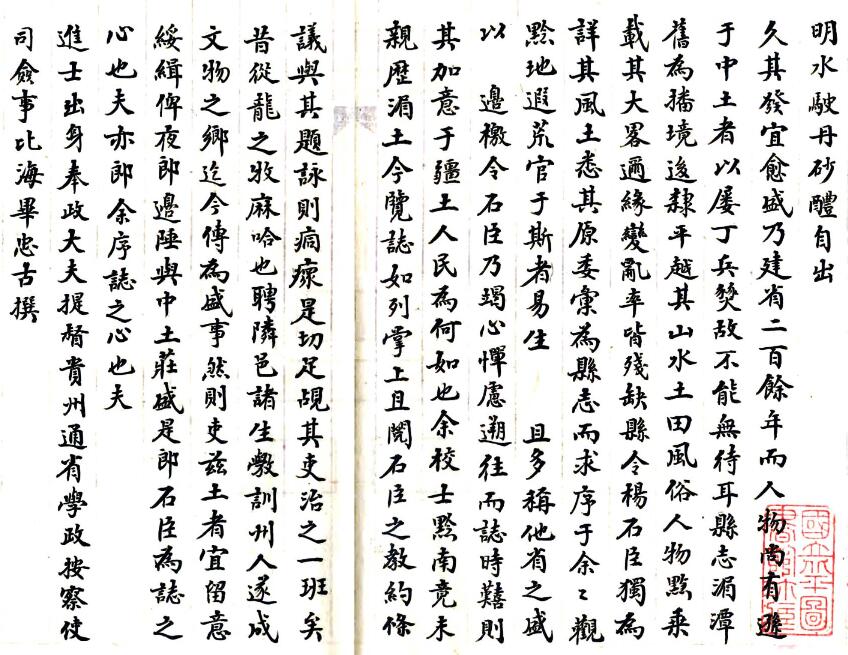 明水駛丹砂醴自出
久其發宜愈盛乃建省二百餘年而人物尚有遜
于中土者以屡丁兵燹故不能無待耳縣志湄潭
舊為播境後隸平越其山水土田風俗人物黔乗
載其大畧邇緣變亂率皆殘缺縣令楊石臣獨為
詳其風土悉其原委彙為縣志而求序于余〻觀
黔地遐荒官于斯者易生 且多稱他省之盛
以 邊檄令石臣乃竭心憚慮遡往而誌時囏則
其加意于疆土人民為何如也余校士黔南竟未
親歷湄土今覽誌如列掌上且閱石臣之教約條
議與其題詠則痌瘝是切足覘其吏治之一班矣
昔從龍之牧麻哈也聘隣邑諸生斅訓州人遂成
文物之鄉迄今傳為盛事然則吏茲土者宜留意
綏緝俾夜郎邊陲與中土莊盛是郎石臣為誌之
心也夫亦郎余序誌之心也夫
進士出身奉政大夫提督貴州通省學政按察使
司僉事北海畢忠吉撰
國立北平圖書館收藏